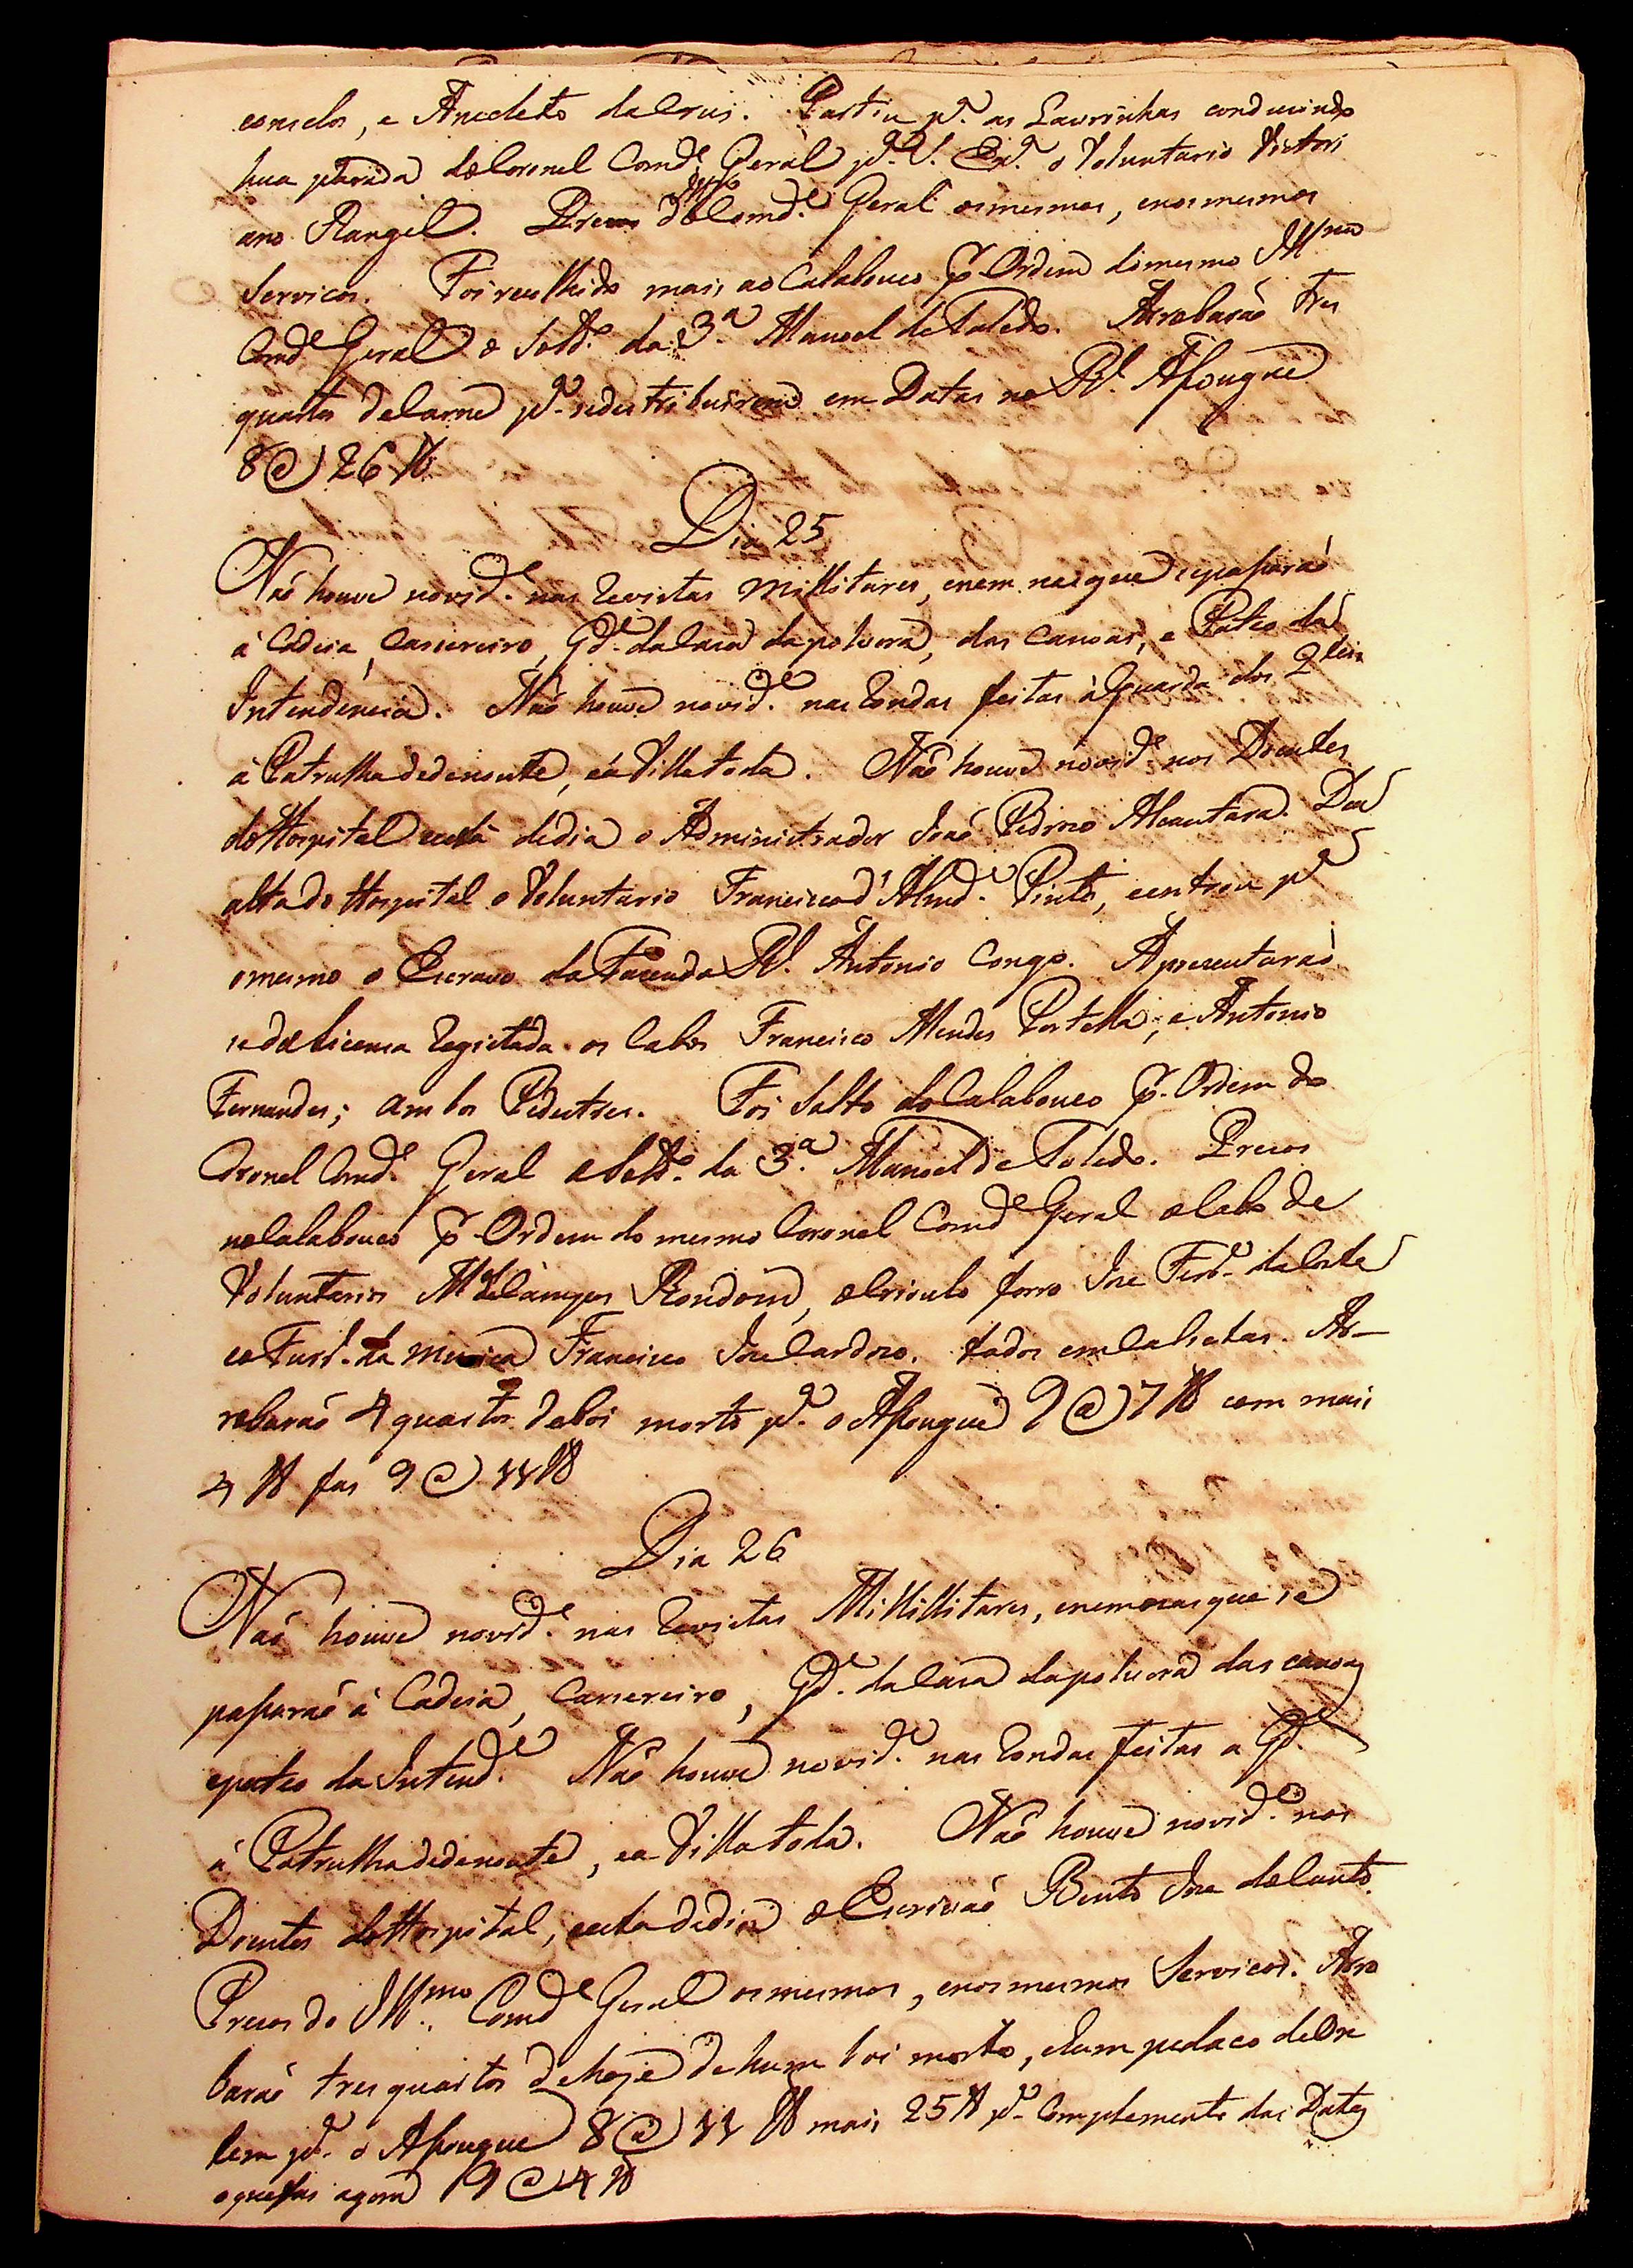 conselos, e Anecleto da Crus. Partiu p.ª as Lavrinhas conduzindo
hua parada do Coronel Comd.e Geral p.ª S. Ex.ª o Voluntario Victori
ano Rangel. Prezos do Comd.e Geral os mesmos, e nos mesmos
Servicos. Foi recolhido mais ao Calabouco p.r Ordem do mesmo Ill.mo
Comd.e Geral o Sold.º da 3.ª Manoel de Toledo. Arrobarão tres
quartos de Carne p.ª se destribuirem em Datas no R.l Asougue
8 @ 26 lb
Dia 25
Não houve novid.e nas Revistas Millitares, e nem nas que se pasarão
á Cadeia, Carcereiro, G.da da Caza da polvora, das canoas, e Patio da
Intendencia. Não houve novid.e nas Rondas feitas á Guarda dos Q.teis
á Patrulha dedenoute, e á Villa toda. Não houve novid.e nos Doentes
do Hospital e está de dia o Administrador João Pedrozo Alcantara. Deu
alta do Hospital o Voluntario Francisco d'Almd.ª Pinto, e entrou p.ª
o mesmo o Escravo da Fazenda R.l Antonio Congo. Apresentarão
se de Licenca Registada os Cabos Francisco Mendes Portella; e Antonio
Fernandes; ambos Pedestres. Foi Solto do Calabouco p.r Ordem do
Coronel Comd.e Geral o Sold.º da 3.ª Manoel de Toledo. Prezos
no Calabouco p.r Ordem do mesmo Coronel Comd.e Geral o Cabo de
Voluntarios M.el de Campos Rondom, o Crioulo forro Joze Ferr.ª da Costa
e o Furr.l da Muzica Francisco Joze Cardozo. todos em Calcetas. Ar-
robarão 4 quartos de boi morto p.ª o Asougue 9 @ 7 lb com mais
4 lb fas 9 @ 11 lb
Dia 26
Não houve novid.e nas Revistas Millillitares, e nem nas que se
pasarão á Cadeia, Carcereiro, G.da da Caza da polvora das canoas
e pateo da Intend.ª Não houve novid.e nas Rondas feitas a G.da
á Patrulha dedenoute, e a Villa toda. Não houve novid.e nos
Doentes do Hospital, e esta de dia o Escrivão Bento Joze do Couto.
Prezos do Ill.mo Comd.e Geral os mesmos, e nos mesmos Servicos. Arro
barão tres quartos de hoje de hum boi morto, e hum pedaco de On
tem p.ª o Asougue 8 @ 11 lb mais 25 lb p.ª Complemento das Datas
o que fas agora 9 @ 4 lb